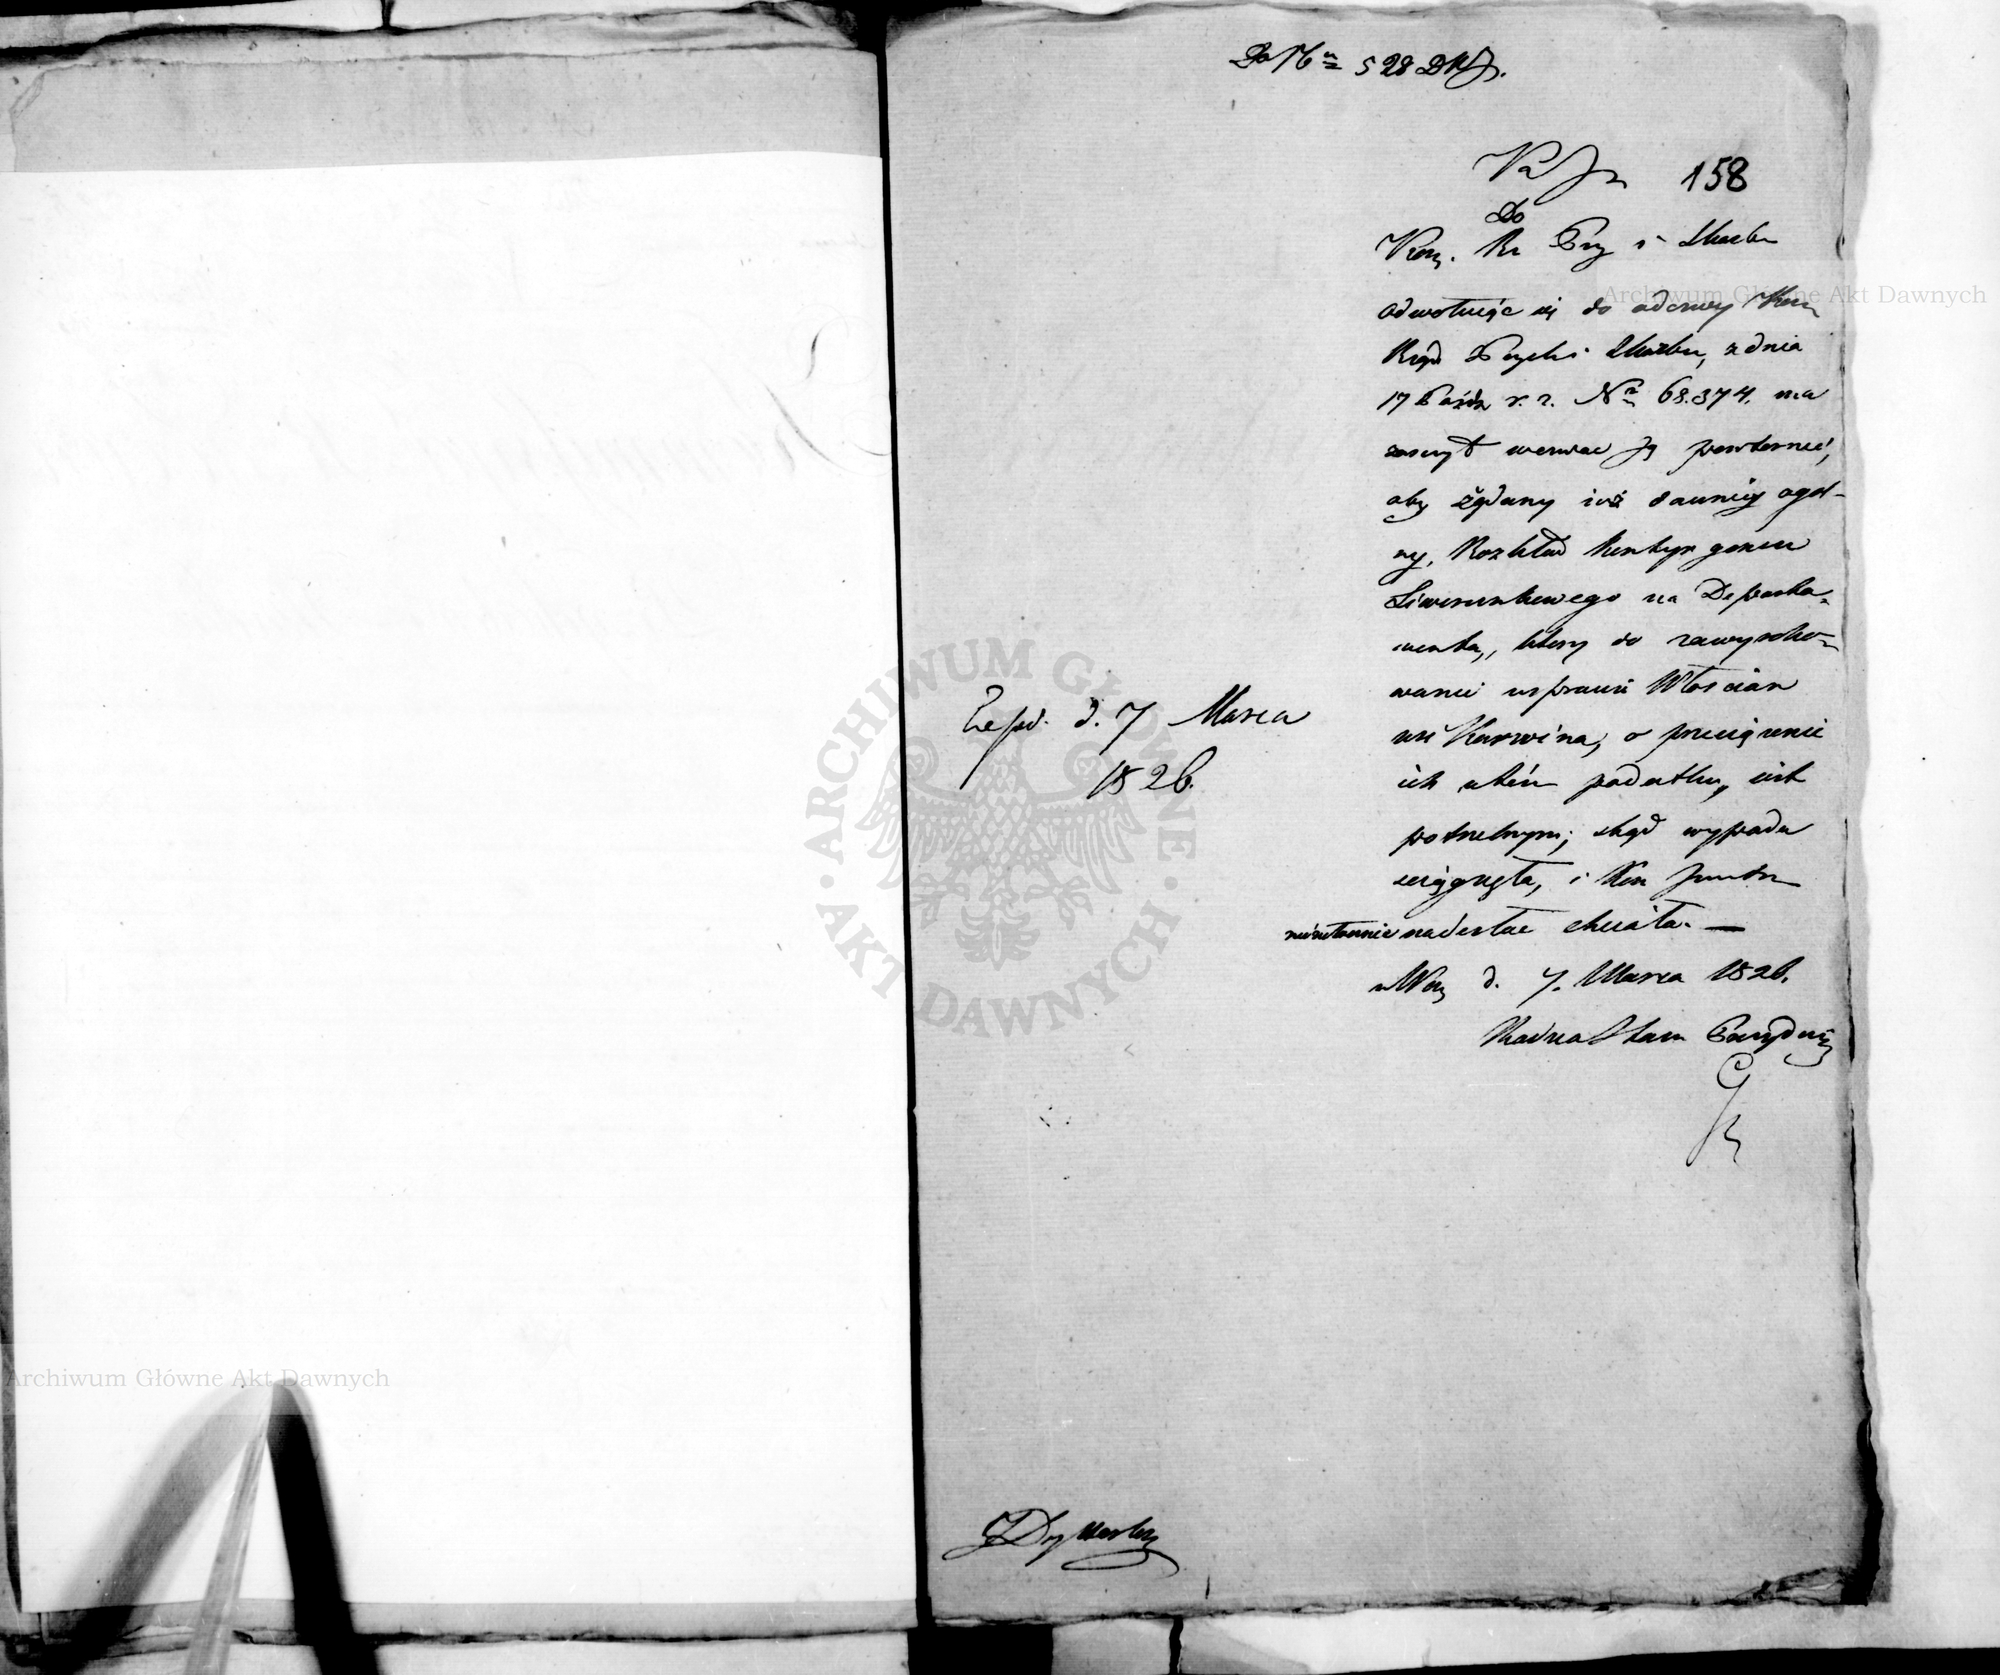 Do Nru 528 DKJ.
158
Do
Kom. Rz Przy i Skarbu
odwołuiąc się do odezwy Kom
Rząd Przych i Skarbu, z dnia
17 Paźdz r. z. Nr 68.374. ma
zaszczyt wezwać Ją powtornie,
aby żądany iuż dawniej ogól-
ny, Rozkład Kontyngensu
Liwerunkowego na Departa-
menta, ktory do zawyroko-
wania w sprawie Włościan
wsi Karwina, o przeciążenie
ich w tém podatku, iest
potrzebnym; skąd wypada
ściągnęła, i Kom
niezwłocznie nadesłać chciała. —
w War d. 7. Marca 1826.
Radca Stanu Prezyduiący
Exped. d. 7 Marca
1826.
Archiwum Główne Akt Dawnych
ARCHIWUM GŁÓWNE · AKT DAWNYCH ·
Archiwum Główne Akt Dawnych